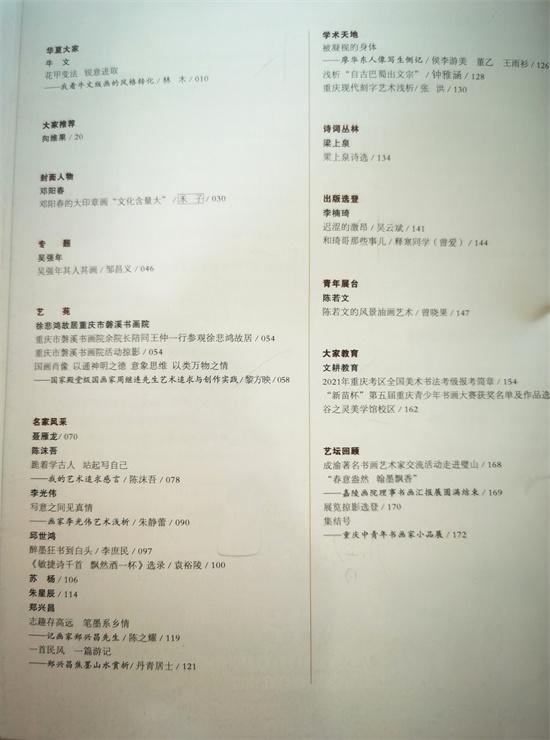 华夏大家
牛 文
花甲变法 锐意进取
——我看牛文版画的风格转化 / 林 木 / 010
大家推荐
向维果 / 20
封面人物
邓阳春
邓阳春的大印章画“文化含量大” / 禾 子 / 030
专 题
吴强年
吴强年其人其画 / 邹昌义 / 046
艺 苑
徐悲鸿故居重庆市磐溪书画院
重庆市磐溪书画院余院长陪同王仲一行参观徐悲鸿故居 / 054
重庆市磐溪书画院活动掠影 / 054
国画肖像 以通神明之德 意象思维 以类万物之情
——国家殿堂级国画家周继连先生艺术追求与创作实践 / 黎方映 / 058
名家风采
聂雁龙 / 070
陈沫吾
跪着学古人 站起写自己
——我的艺术追求感言 / 陈沫吾 / 078
李光伟
写意之间见真情
——画家李光伟艺术浅析 / 朱静蕾 / 090
邱世鸿
醉墨狂书到白头 / 李庶民 / 097
《敏捷诗千首 飘然酒一杯》选录 / 袁裕陵 / 100
苏 杨 / 106
朱星辰 / 114
郑兴昌
志趣存高远 笔墨系乡情
——记画家郑兴昌先生 / 陈之耀 / 119
一首民风 一篇游记
——郑兴昌焦墨山水赏析 / 丹青居士 / 121
学术天地
被凝视的身体
——廖华东人像写生侧记 / 侯李游美 董乙 王雨衫 / 126
浅析“自古巴蜀出文宗” / 钟雅涵 / 128
重庆现代刻字艺术浅析 / 张 洪 / 130
诗词丛林
梁上泉
梁上泉诗选 / 134
出版选登
李楠琦
迟涩的激昂 / 吴云斌 / 141
和琦哥那些事儿 / 释寒同学（曾爱） / 144
青年展台
陈若文
陈若文的风景油画艺术 / 曾晓果 / 147
大家教育
文耕教育
2021年重庆考区全国美术书法考级报考简章 / 154
“新苗杯”第五届重庆青少年书画大赛获奖名单及作品选
谷之灵美学馆校区 / 162
艺坛回顾
成渝著名书画艺术家交流活动走进璧山 / 168
“春意盎然 翰墨飘香”
——嘉陵画院理事书画汇报展圆满结束 / 169
展览掠影选登 / 170
集结号
——重庆中青年书画家小品展 / 172